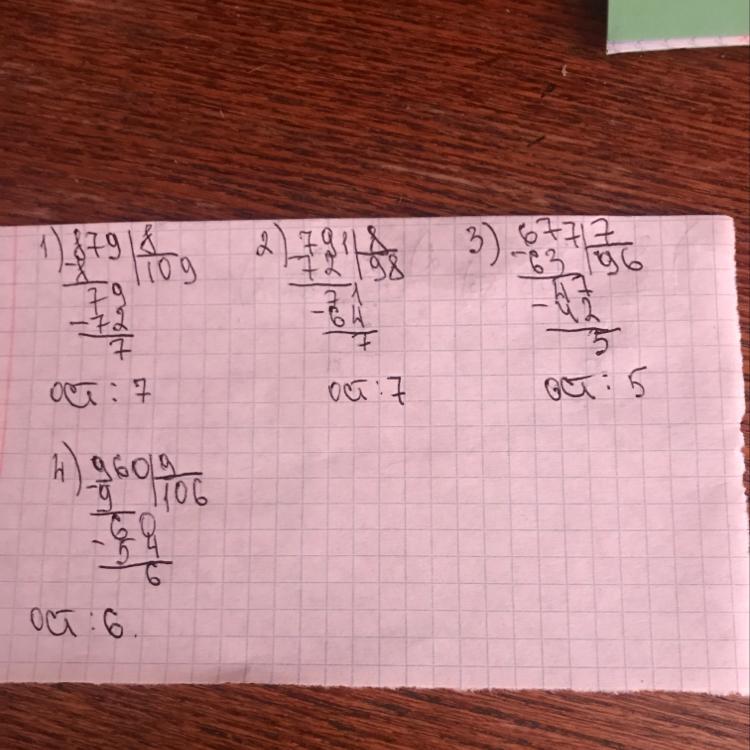 1) 879 | 8
- 8 | 109
79
- 72
7
ост : 7
2) 791 | 8
- 72 | 98
71
- 64
7
ост : 7
3) 677 | 7
- 63 | 96
47
- 42
5
ост : 5
4) 960 | 9
- 9 | 106
60
- 54
6
ост : 6.